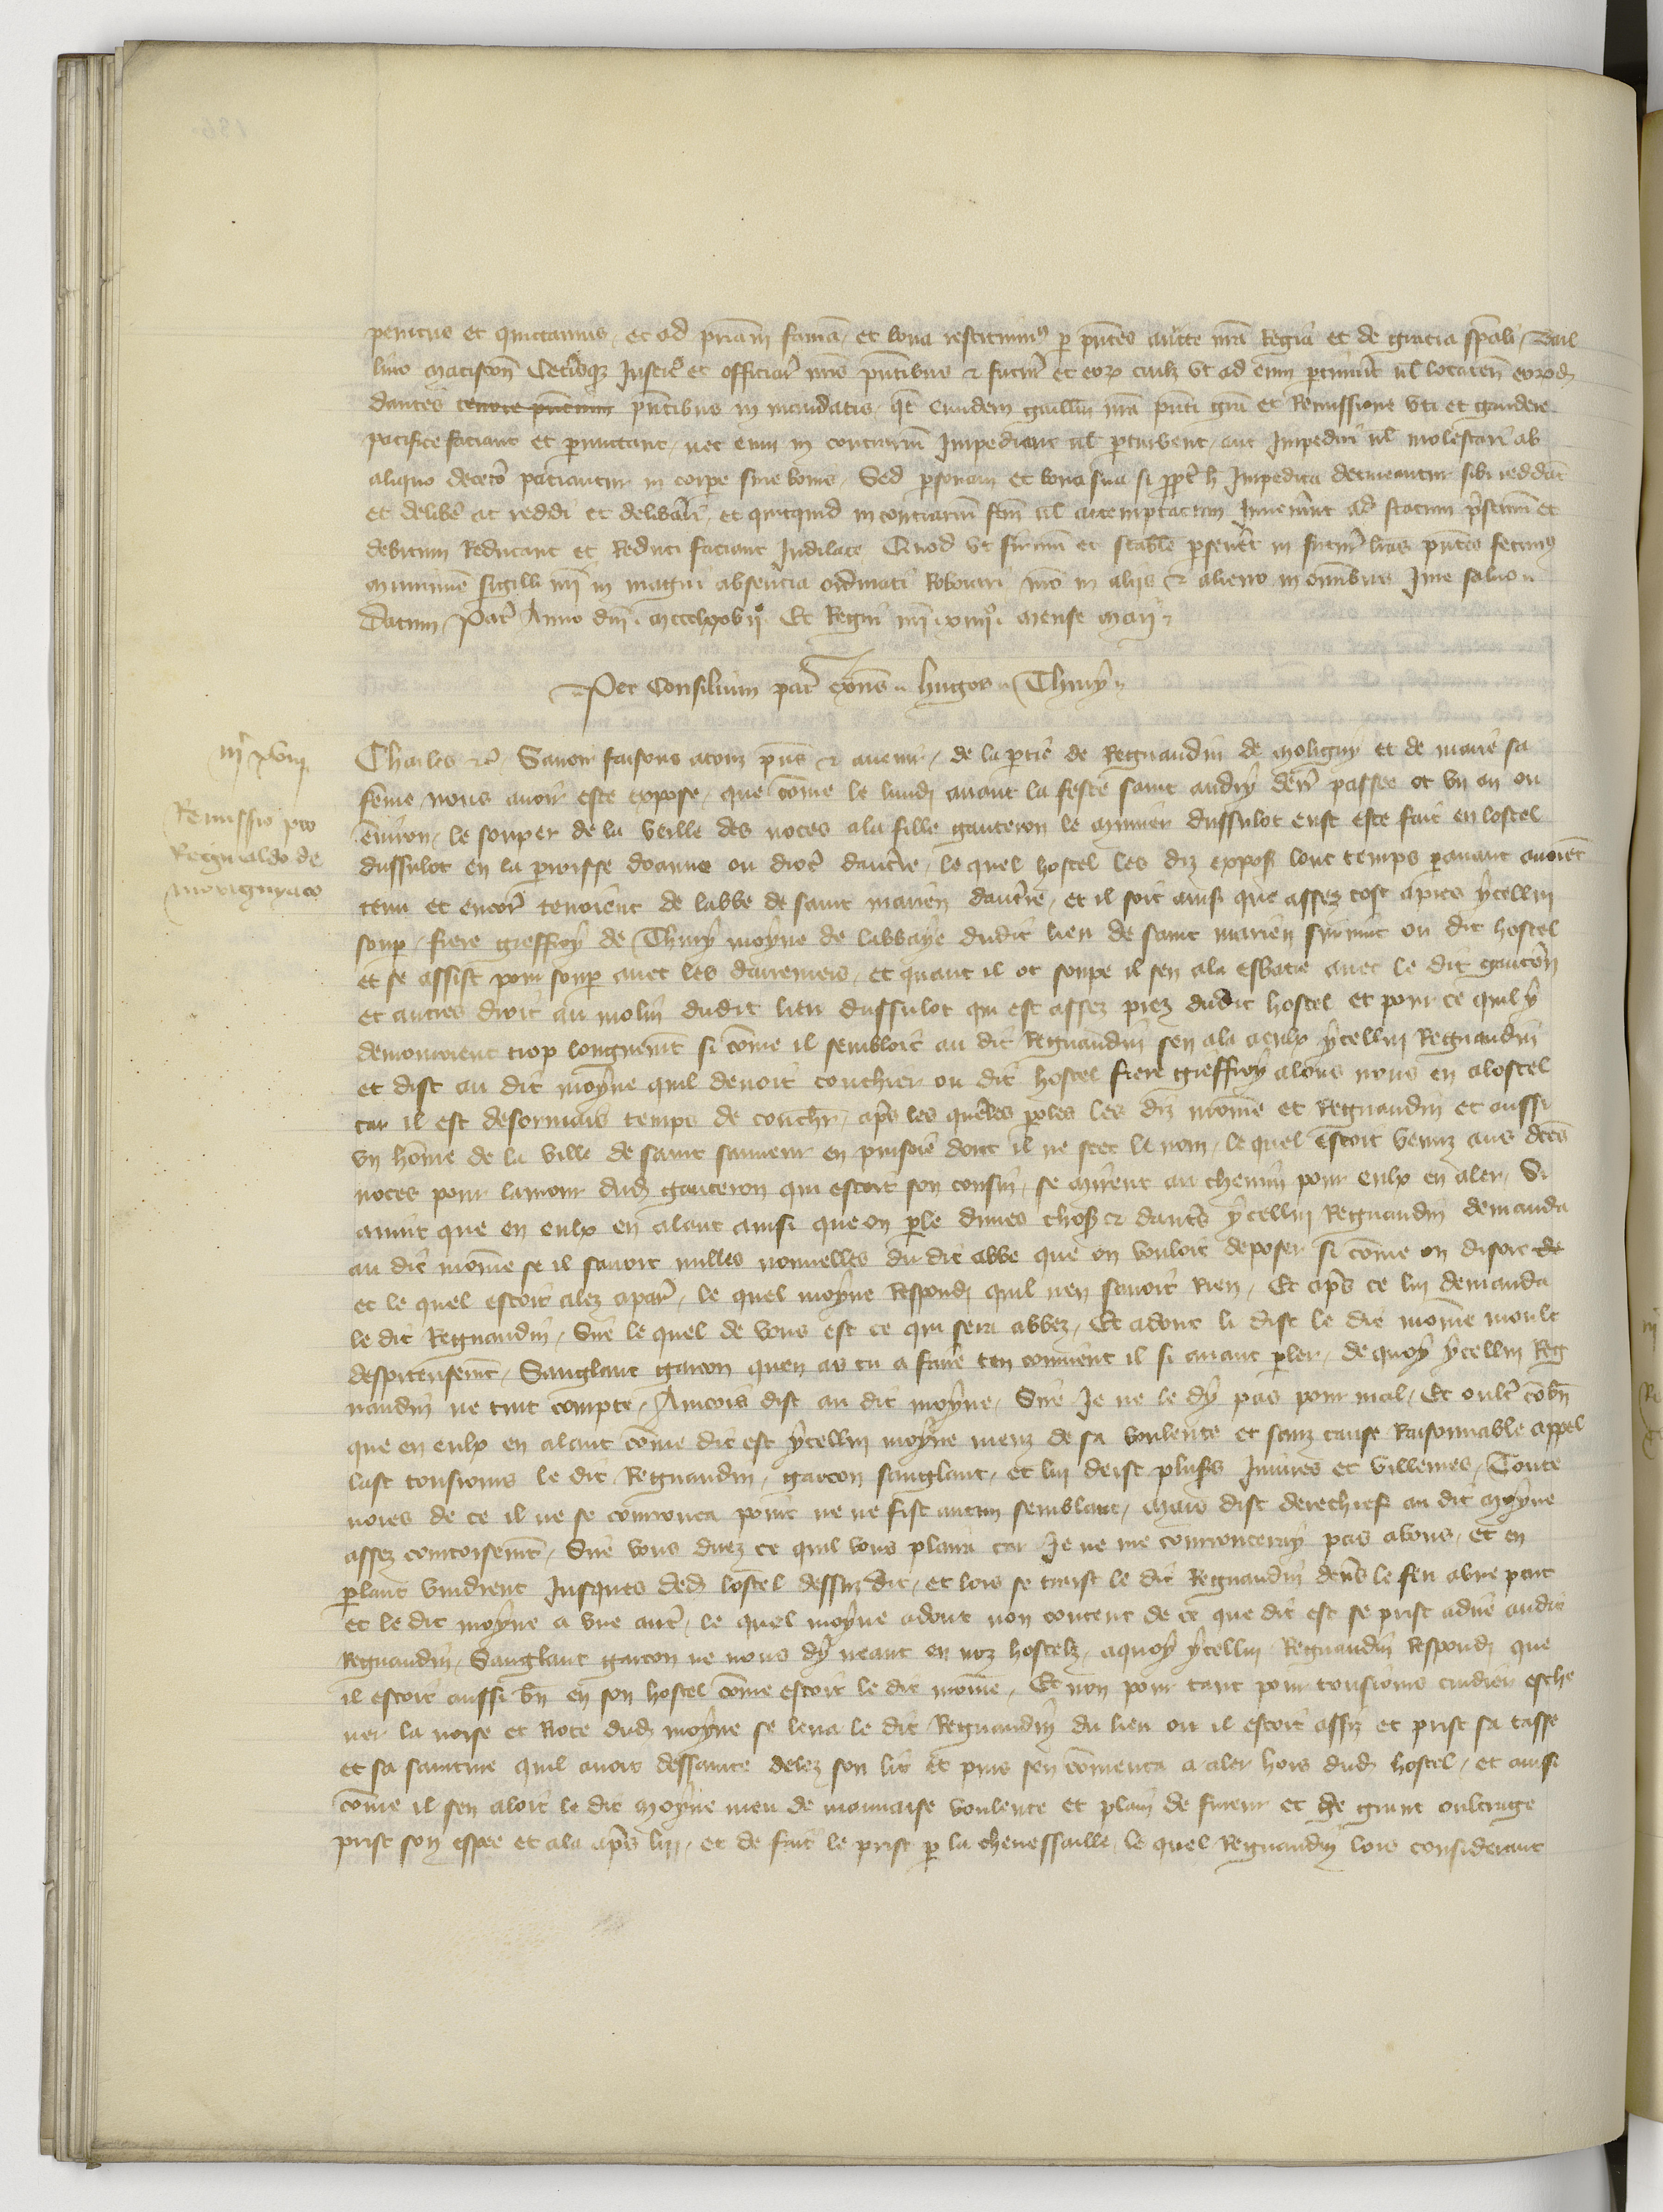 penitus et quictamus, et ad priam famā, et bona restituim9 p pntes aucte nrā Regiā et de gracia spāli, Bail
livo Matiscoñ Ceterisqz Justic et officiar nris pntibus & futur et eorū cuilz vt ad eum ptinuit ul locateñ eorūdē
dantes tenore presencium pntibus in mandatis, qt eundem guillm nrā pnti grā et Remissione vti et gaudere
pacifice faciant et pmittant, nec eum in contrariū Impediant ul pturbent, aut Impediri ul molestari ab
aliquo decetō paciantur in corpe siue bonis, Sed psonam et bona sua si ppt h Impedita detineantur sibi reddāt
et delibēt ac reddi et delibāri, et quicquid in contrariū fcm ul attemptatum Inuenint ad statum pstinū et
debitum Reducant et Reduci faciant Indilate Quod vt firmū et stabile pseuēt in futur lras pntes fecim9
munimine sigilli nri in magni absencia ordinati Roborari, nro in aliis & alieno in omibus Jure saluo
Datum Par Anno dni mccclxxvij° Et Regni nri xiiij° mense Maij
Per Consilium par exñs hugos Thuiy
iijc xviij
Remissio pro
Reginaldo de
Morignyaco
Charles &c Sauoir faisons atoux pñs & auenir, de la ptie de Regnaudin de moligny et de marie sa
fēme, nous auoir este expose, que cōme le lundj auant la feste saint andry derr passee ot vn an ou
ēuiron, le souper de la veille des noces ala fille gauteron le munier dussulot eust este fait en lostel
dussulot en la pvoisse doanne ou dioc daucre, le quel hostel les diz expoz lonc temps pauant auoiēt
tenu et encor tenoient de labbe de saint marien daucre, et il soit ainsi que assez tost apres ycellui
soup, frere greffroy de Thury moyne de labbaye dudit lieu de saint marien suruint ou dit hostel
et se assist pour soup auec les darreniers, et quant il ot soupe il sen ala esbatre auec le dit gautōn
et autres droit au molin dudit lieu dussulot qui est assez prez dudit hostel et pour ce quil y
demouroient trop longuemt si cōme il sembloit au dit Regnaudin sen ala aeulx ycellui Regnaudin
et dist au dit moyne quil deuoit couchier ou dit hostel frere greffroy alons nous en alostel
car il est desormais temps de couchr, aps les queles poles les diz moine et Regnaudin et aussi
vn hōme de la ville de saint sauueur en puisoie dont il ne scet le nom, le quel estoit venuz aus dces
noces pour lamour dudj gauteron qui estoit son cousin, se mirent au chemin pour eulx en aler, Si
auint que en eulx en alant ainsi que on ple dunes choses & dautrs ycellui Regnaudin demanda
au dit moine se il sauoit nulles nouuelles du dit abbe que on vouloit deposer si cōme on disoit de
et le quel estoit alez apar, le quel moyne Respondj quil nen sauoit Rien, Et aps ce lui demanda
le dit Regnaudin, Sire le quel de vous est ce qui sera abbez, Et adonc li dist le dit moine moult
despiteusemt, Sanglant garcon quen as tu a faire ten conuient il si auant pler, de quoy ycellui Reg
naudin ne tint compte, Aincois dist au dit moyne, Sire Je ne le dy pas pour mal, Et oultr cōbn
que en eulx en alant cōme dit est ycellui moyne meuz de sa voulente et sanz cause Raisonnable appel
last tousiours le dit Regnaudin, garcon sanglant, et lui deist plusrs Iniures et villenies, Toute
uoies de ce il ne se courouca point ne ne fist aucun semblant, mais dist derechief au dit moyne
assez courtoisemt, Sire vous direz ce quil vous plaira car Je ne me courrouceray pas avous, et en
plant vindrent Jusques dedj lostel dessuz dit, et lors se traist le dit Regnaudin deurs le feu avne part
et le dit moyne a vne autr, le quel moyne adont non content de ce que dit est se prist adire audit
Regnaudin, Sanglant garcon ne nous dy neant en noz hostelz, aquoy ycellui Regnaudin Respondj que
il estoit aussi bn en son hostel cōme estoit le dit moine, Et non pour tant pour tousiours cuidier esche
uer la noise et Riote dudj moyne se leua le dit Regnaudin du lieu ou il estoit assiz et prist sa tasse
et sa sainture quil auoit dessainte delez son lit et puis sen cōmenca a aler hors dudj hostel, et ainsi
cōme il sen aloit le dit moyne meu de mauuaise voulente et plain de fureur et de grant oultrage
prist son espee et ala aps lui, et de fait le prist p la cheuessaille, le quel Regnaudin lors considerant